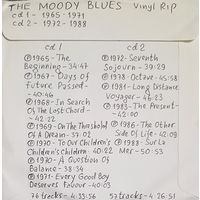 THE MOODY BLUES Vinyl Rip
cd 1 - 1965 - 1971
cd 2 - 1972 - 1988
cd 1
℗1965 - The
Beginning - 34:47
℗1967 - Days of
future Passed -
- 40:46
℗1968 - In Search
Of The Lost Chord -
- 42:02
℗1969 - On the Threshold
Of a Dream - 37:03
℗1970 - To Our Children's
Children's Children - 40:22
℗1970 - A Question Of
Balance - 38:34
℗1971 - Every Good Boy
Deserves Favour - 40:03
76 tracks - 4:33:56
cd 2
℗1972 - Seventh
Sojourn - 39:29
℗1978 - Octave - 45:58
℗1981 - Long Distance
Voyager - 46:23
℗1983 - The Present -
- 42:00
℗1986 - The Other
Side Of Life - 42:09
℗1988 - Sur La
Mer - 50:53
57 tracks - 4:26:51